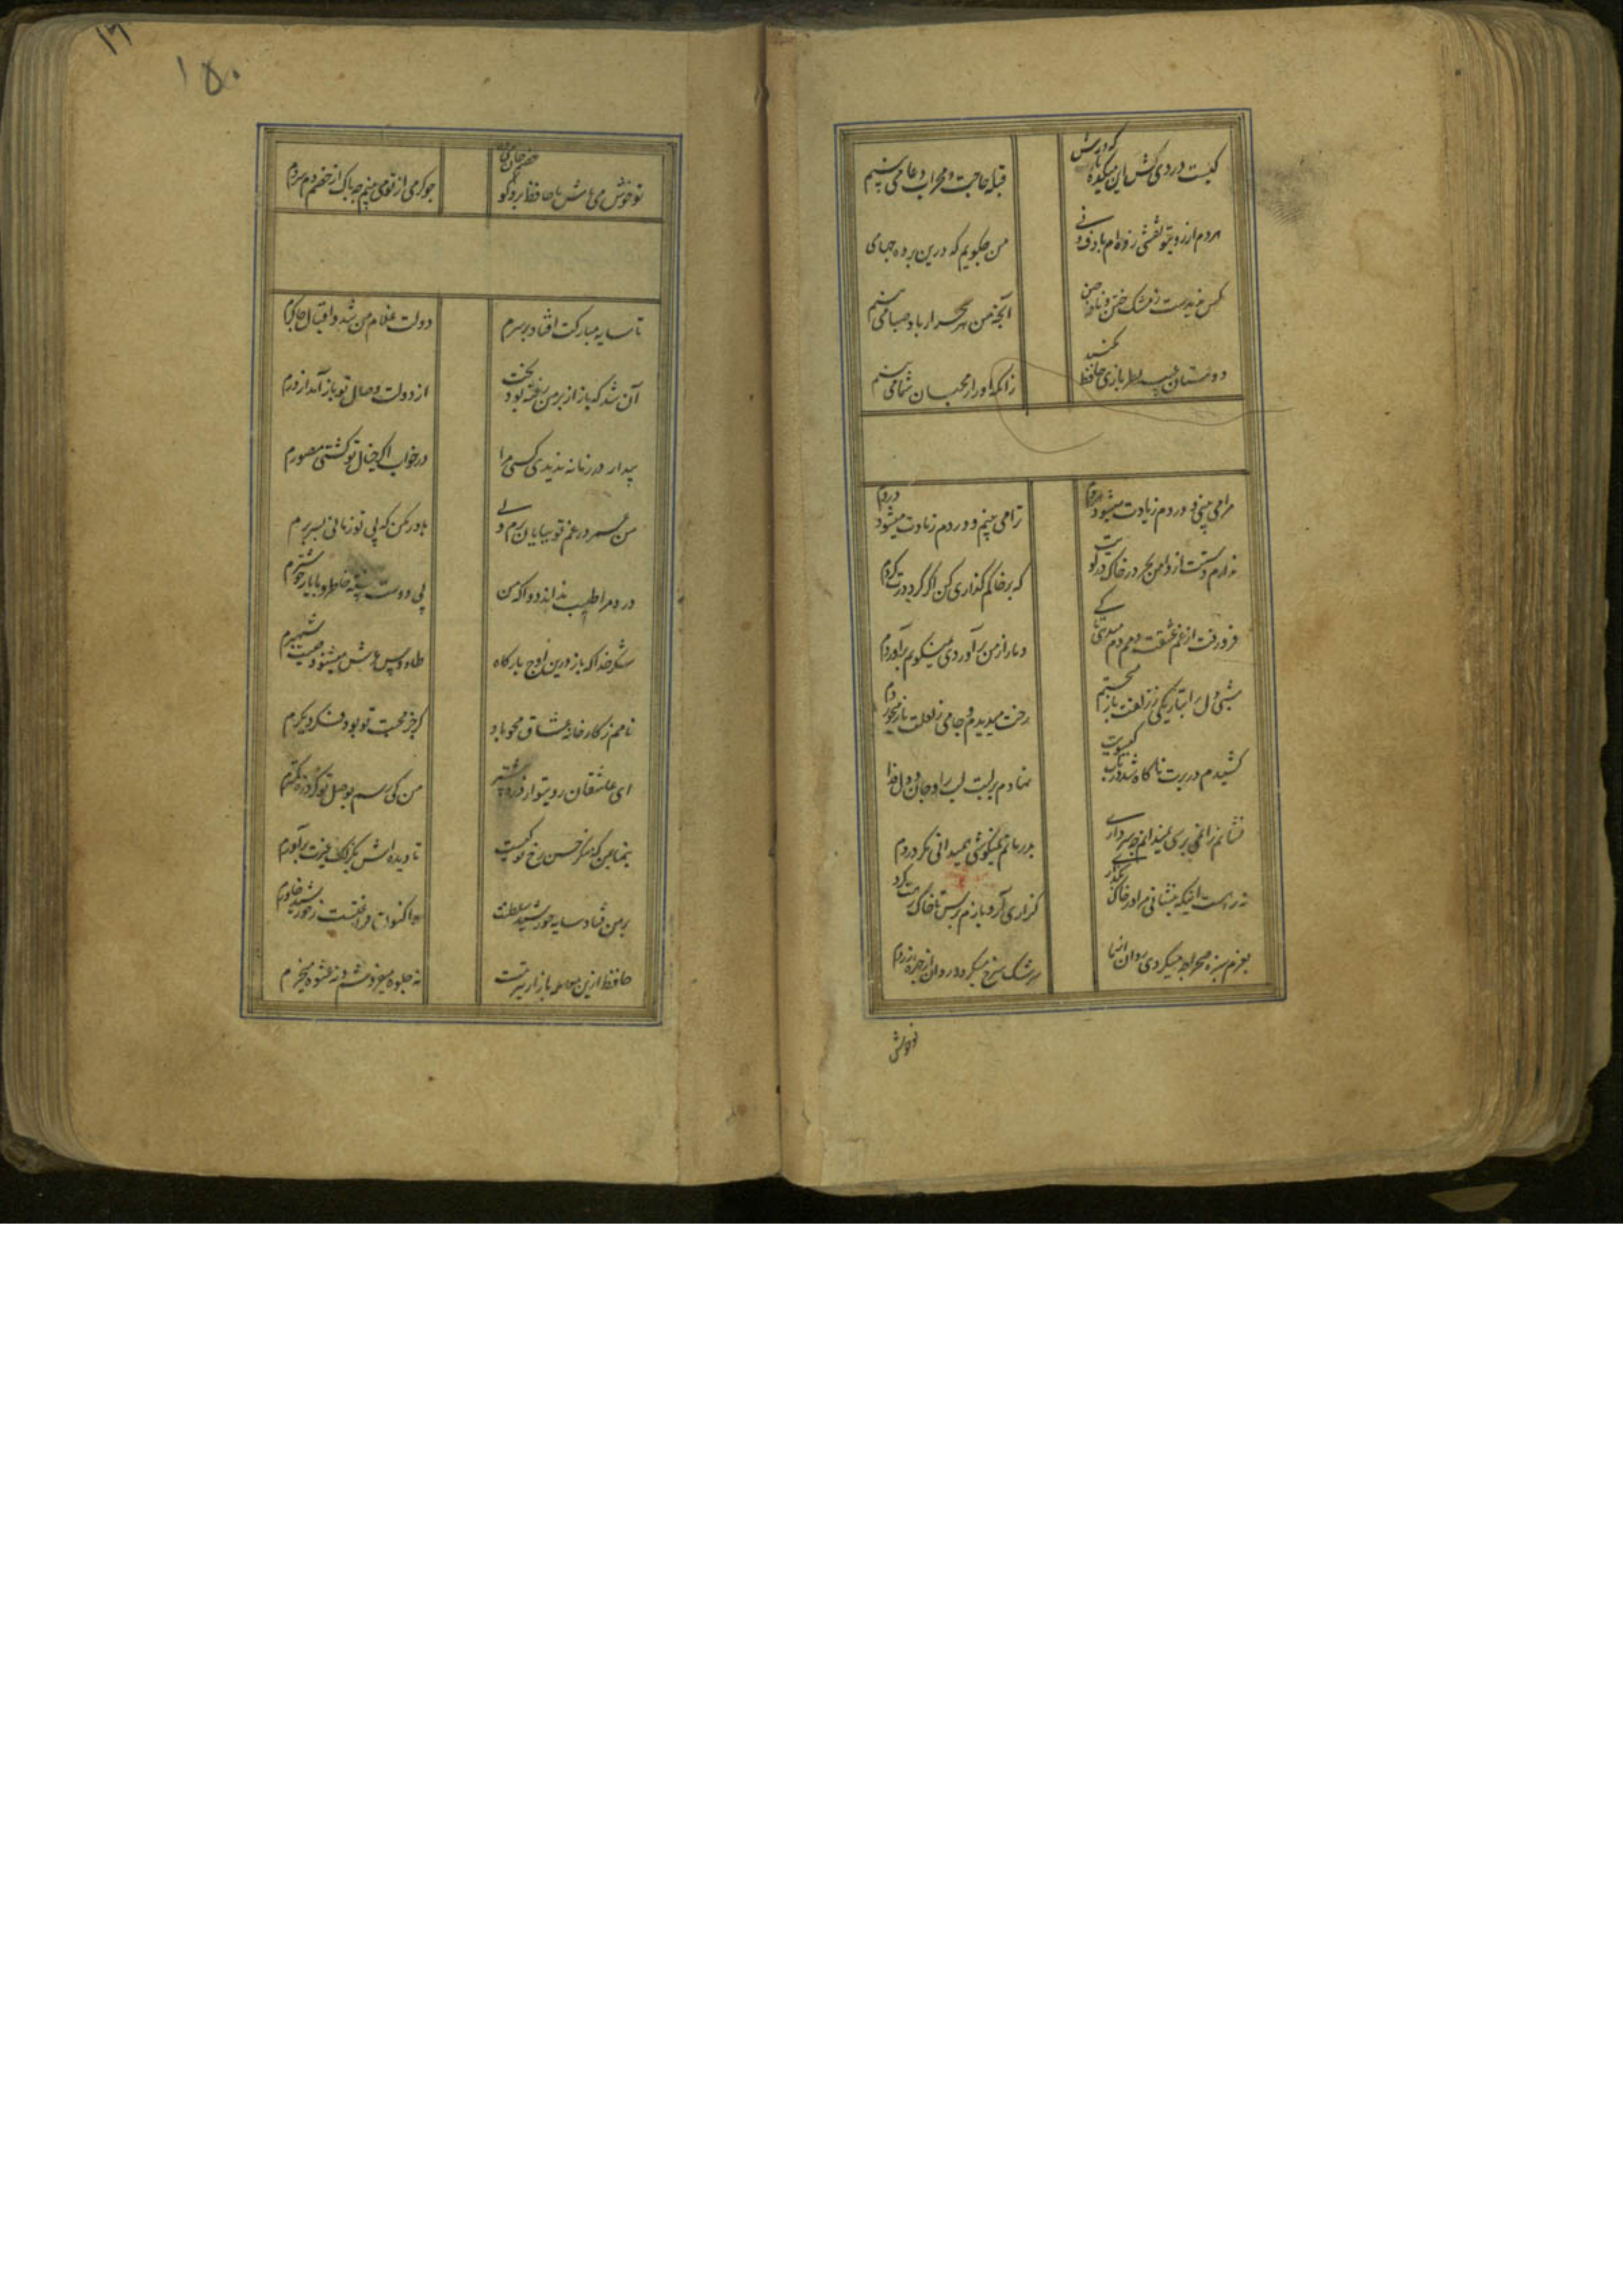 کیست دردی کش این میکده یارب که درش
قبله حاجت و محراب دعا می بینم
هردم از روی تو نقشی زندم راه خیال
من چکویم که درین پرده چهای بینم
کس ندیدست ز مشک ختن و نافه چین
آنچه من هر سحر از باد صبا می بینم
دوستان عیب نظربازی حافظ مکنید
زانکه او را ز محبان شما می بینم
مرا می بینی و دردم زیادت میشود هردم
ترا می بینم و دردم زیادت میشود دردم
ندارم دستت از دامن بجز در خاک
که بر خاکم گذاری کن اگر گردت کردم
فرو رفت از غم عشقت دمم دم میدهی تا کی
دمار از من برآوردی نمیگویم برآوردم
شبی دل را بتاریکی ز زلفت باز می جستم
رخت میدیدم و جامی ز لعلت باز میخوردم
کشیدم در برت ناگاه شد در تاب گیسویت
نهادم بر لبت لب را و جان و دل فدا
بدرمانم نمیکوشی نمیدانی مکر دردم
نه راهست اینکه بنشانی مرا در خاک
گذاری آر و بازم پرس تا خاک رهت گردم
سرشک سرخ میگردد روان از چهره زردم
تو خوش
تو خوش می باش با حافظ برو گو خصم جان می ده
چو گرمی از تو می بینم چه باک از خصم دم سردم
تا سایه مبارکت افتاد بر سرم
دولت غلام من شد و اقبال چاکرم
آن شد که باز از بر من رفته بود بخت
از دولت وصال تو باز آمد از درم
بیدار در زمانه ندیدی کسی مرا
در خواب اگر خیال تو گشتی مصورم
من عمر در غم تو بپایان برم ولی
باور مکن که بی تو زمانی بسر برم
درد مرا طبیب نداند دوا که من
بی دوست خسته خاطر و با یار خوشترم
شکر خدا که باز درین اوج بارگاه
طاوس عرش میشنود صیت شهپرم
نامم ز کارخانه عشاق محو باد
گر جز محبت تو بود فکر دیکرم
ای عاشقان روی تو از ذره بیشتر
من کی رسم بوصل تو کز ذره کمترم
بنما بمن که منکر حسن رخ تو کیست
تا دیده اش بگزلک غیرت برآورم
بر من فتاد سایه خورشید سلطنت
و اکنون فراغتست ز خورشید خاورم
حافظ ازین معامله بازار تیزتست
نه جلوه میفروشم و نه عشوه میخرم
۱۵۰